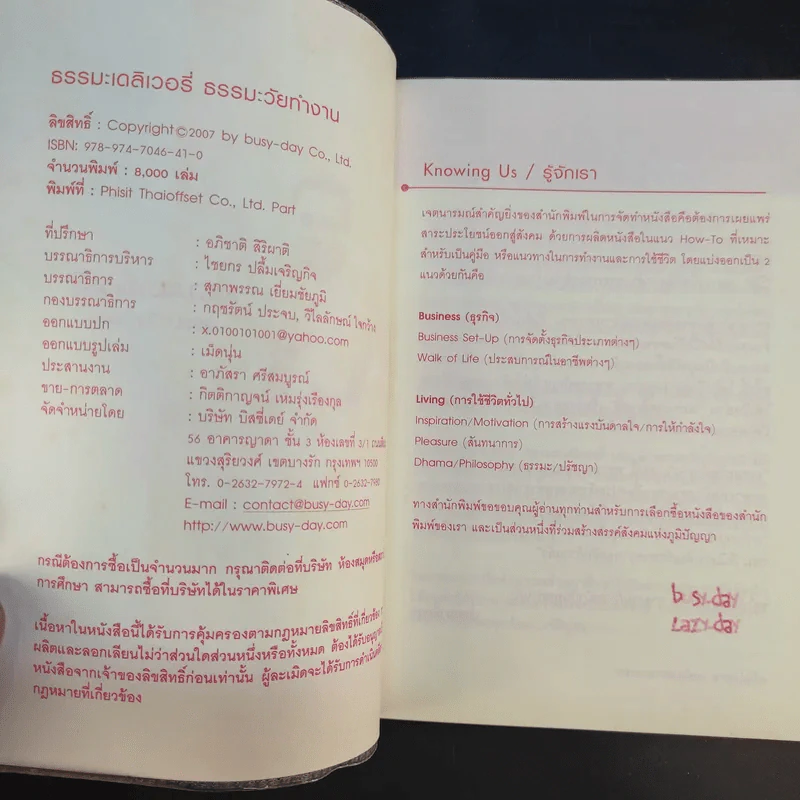 ธรรมะเดลิเวอรี่ ธรรมะวัยทำงาน
ลิขสิทธิ์ : Copyright©2007 by busy-day Co., Ltd.
ISBN: 978-974-7046-41-0
จำนวนพิมพ์ : 8,000 เล่ม
พิมพ์ที่ : Phisit Thaioffset Co., Ltd. Part
ที่ปรึกษา : อภิชาติ สิริผาติ
บรรณาธิการบริหาร : ไชยกร ปลื้มเจริญกิจ
บรรณาธิการ : สุภาพรรณ เยี่ยมชัยภูมิ
กองบรรณาธิการ : กฤชรัตน์ ประจบ, วิไลลักษณ์ ใจกว้าง
ออกแบบปก : x.0100101001@yahoo.com
ออกแบบรูปเล่ม : เม็ดนุ่น
ประสานงาน : อาภัสรา ศรีสมบูรณ์
ขาย-การตลาด : กิตติกาญจน์ เหมรุ่งเรืองกุล
จัดจำหน่ายโดย : บริษัท บิสซี่เดย์ จำกัด
56 อาคารญาดา ชั้น 3 ห้องเลขที่ 3/1
แขวงสุริยวงศ์ เขตบางรัก กรุงเทพฯ 10500
โทร. 0-2632-7972-4 แฟกซ์ 0-2632-7980
E-mail : contact@busy-day.com
http://www.busy-day.com
กรณีต้องการซื้อเป็นจำนวนมาก กรุณาติดต่อที่บริษัท ห้องสมุดหรือ
การศึกษา สามารถซื้อที่บริษัทได้ในราคาพิเศษ
เนื้อหาในหนังสือนี้ได้รับการคุ้มครองตามกฎหมายลิขสิทธิ์ที่เกี่ยวข้อง
ผลิตและลอกเลียนไม่ว่าส่วนใดส่วนหนึ่งหรือทั้งหมด ต้องได้รับ
หนังสือจากเจ้าของลิขสิทธิ์ก่อนเท่านั้น ผู้ละเมิดจะได้รับการ
กฎหมายที่เกี่ยวข้อง
Knowing Us / รู้จักเรา
เจตนารมณ์สำคัญยิ่งของสำนักพิมพ์ในการจัดทำหนังสือคือต้องการเผยแพร่
สาระประโยชน์ออกสู่สังคม ด้วยการผลิตหนังสือในแนว How-To ที่เหมาะ
สำหรับเป็นคู่มือ หรือแนวทางในการทำงานและการใช้ชีวิต โดยแบ่งออกเป็น 2
แนวด้วยกันคือ
Business (ธุรกิจ)
Business Set-Up (การจัดตั้งธุรกิจประเภทต่างๆ)
Walk of Life (ประสบการณ์ในอาชีพต่างๆ)
Living (การใช้ชีวิตทั่วไป)
Inspiration/Motivation (การสร้างแรงบันดาลใจ/การให้กำลังใจ)
Pleasure (สันทนาการ)
Dhama/Philosophy (ธรรมะ/ปรัชญา)
ทางสำนักพิมพ์ขอขอบคุณผู้อ่านทุกท่านสำหรับการเลือกซื้อหนังสือของสำนัก
พิมพ์ของเรา และเป็นส่วนหนึ่งที่ร่วมสร้างสรรค์สังคมแห่งภูมิปัญญา
busy-day
Lazy-day